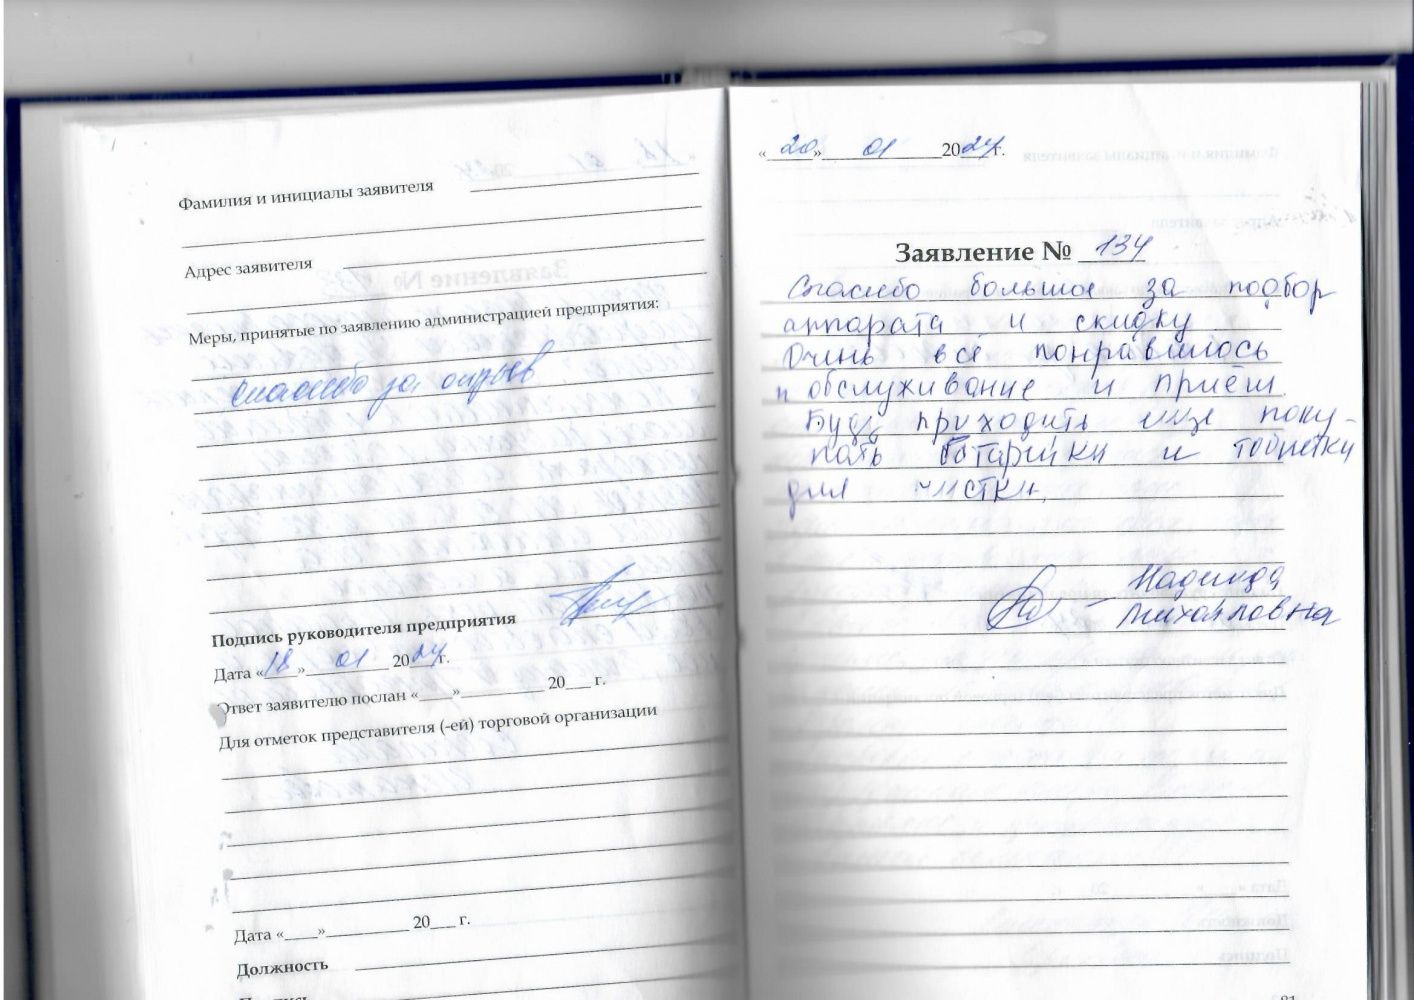 Фамилия и инициалы заявителя
Адрес заявителя
Меры, принятые по заявлению администрацией предприятия:
спасибо за отзыв
Подпись руководителя предприятия
Дата «18» 01 2024 г.
Ответ заявителю послан «____»__________ 20___ г.
Для отметок представителя (-ей) торговой организации
Дата «____»__________ 20___ г.
Должность
«20» 01 2024 г.
Заявление № 134
Спасибо большое за подбор
аппарата и скидку
Очень всё понравилось
и обслуживание и приём.
Буду приходить еще поку-
пать батарейки и таблетки
для чистки.
Надежда
Михайловна
81